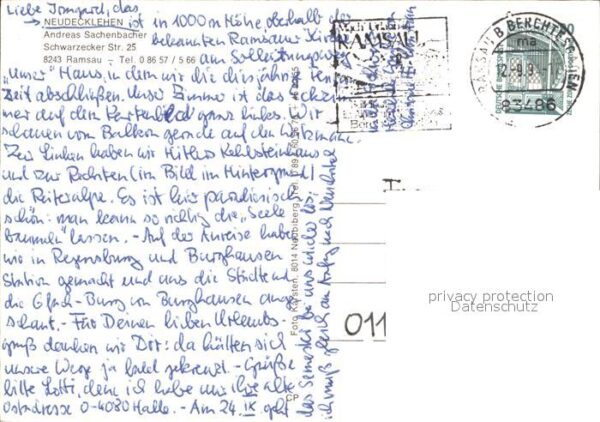 Liebe Irmgard, das
NEUDECKLEHEN ist in 1000 m Höhe oberhalb der
Andreas Sachenbacher bekannten Ramsauer Kirche
Schwarzecker Str. 25 am Soleleitungsweg
8243 Ramsau - Tel. 0 86 57 / 5 66
"Unser" Haus, in dem wir die diesjährige
zeit abschließen. Unser Zimmer ist das
auf dem Kartenbild ganz links. Wir
schauen vom Balkon gerade auf den Watzmann.
Zur Linken haben wir Hitlers Kehlsteinhaus
und zur Rechten (im Bild im Hintergrund)
die Reiteralpe. Es ist hier paradiesisch
schön: man kann so richtig die "Seele
baumeln" lassen. - Auf der Anreise haben
wir in Regensburg und Burghausen
Station gemacht und uns die Städte und
die Burg von Burghausen ange-
schaut. - Für Deinen lieben Urlaubs-
gruß danken wir Dir: da hätten sich
unsere Wege ja bald gekreuzt. - Grüße
bitte Lotti, denn ich habe nur ihre alte
Ostadresse O-4080 Halle. - Am 24. IX. geht
das Semester bei uns wieder los;
ich muß gleich am Anfang nach
Foto Karsten, 8014 Neubiberg, Tel. 0 89
CP
RAMSAU
RAMSAU B BERCHTESGADEN
ma
83486
011
privacy protection
Datenschutz